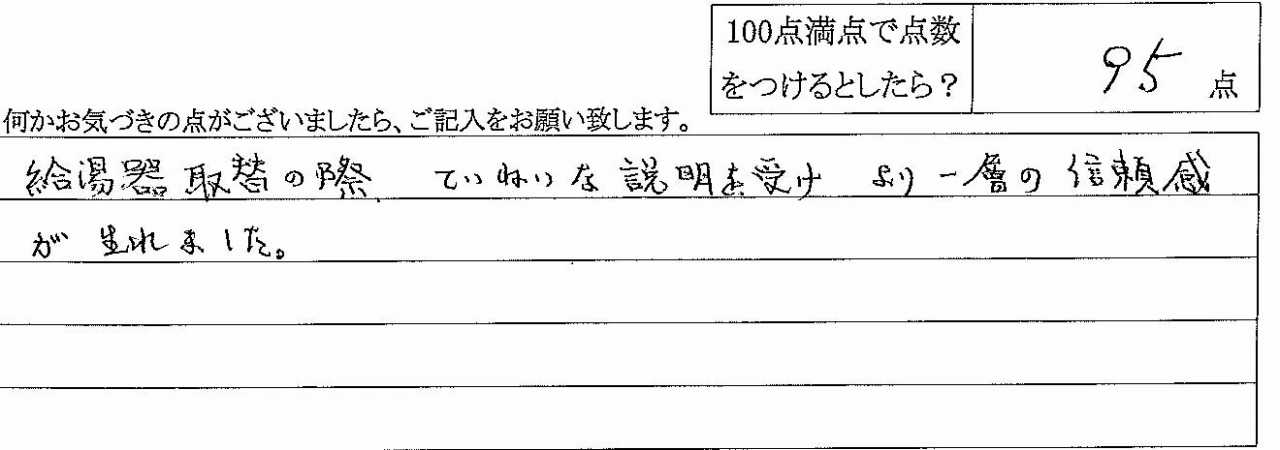 100点満点で点数
をつけるとしたら？
95 点
何かお気づきの点がございましたら、ご記入をお願い致します。
給湯器取替の際 ていねいな説明を受け より一層の信頼感
が生れました。